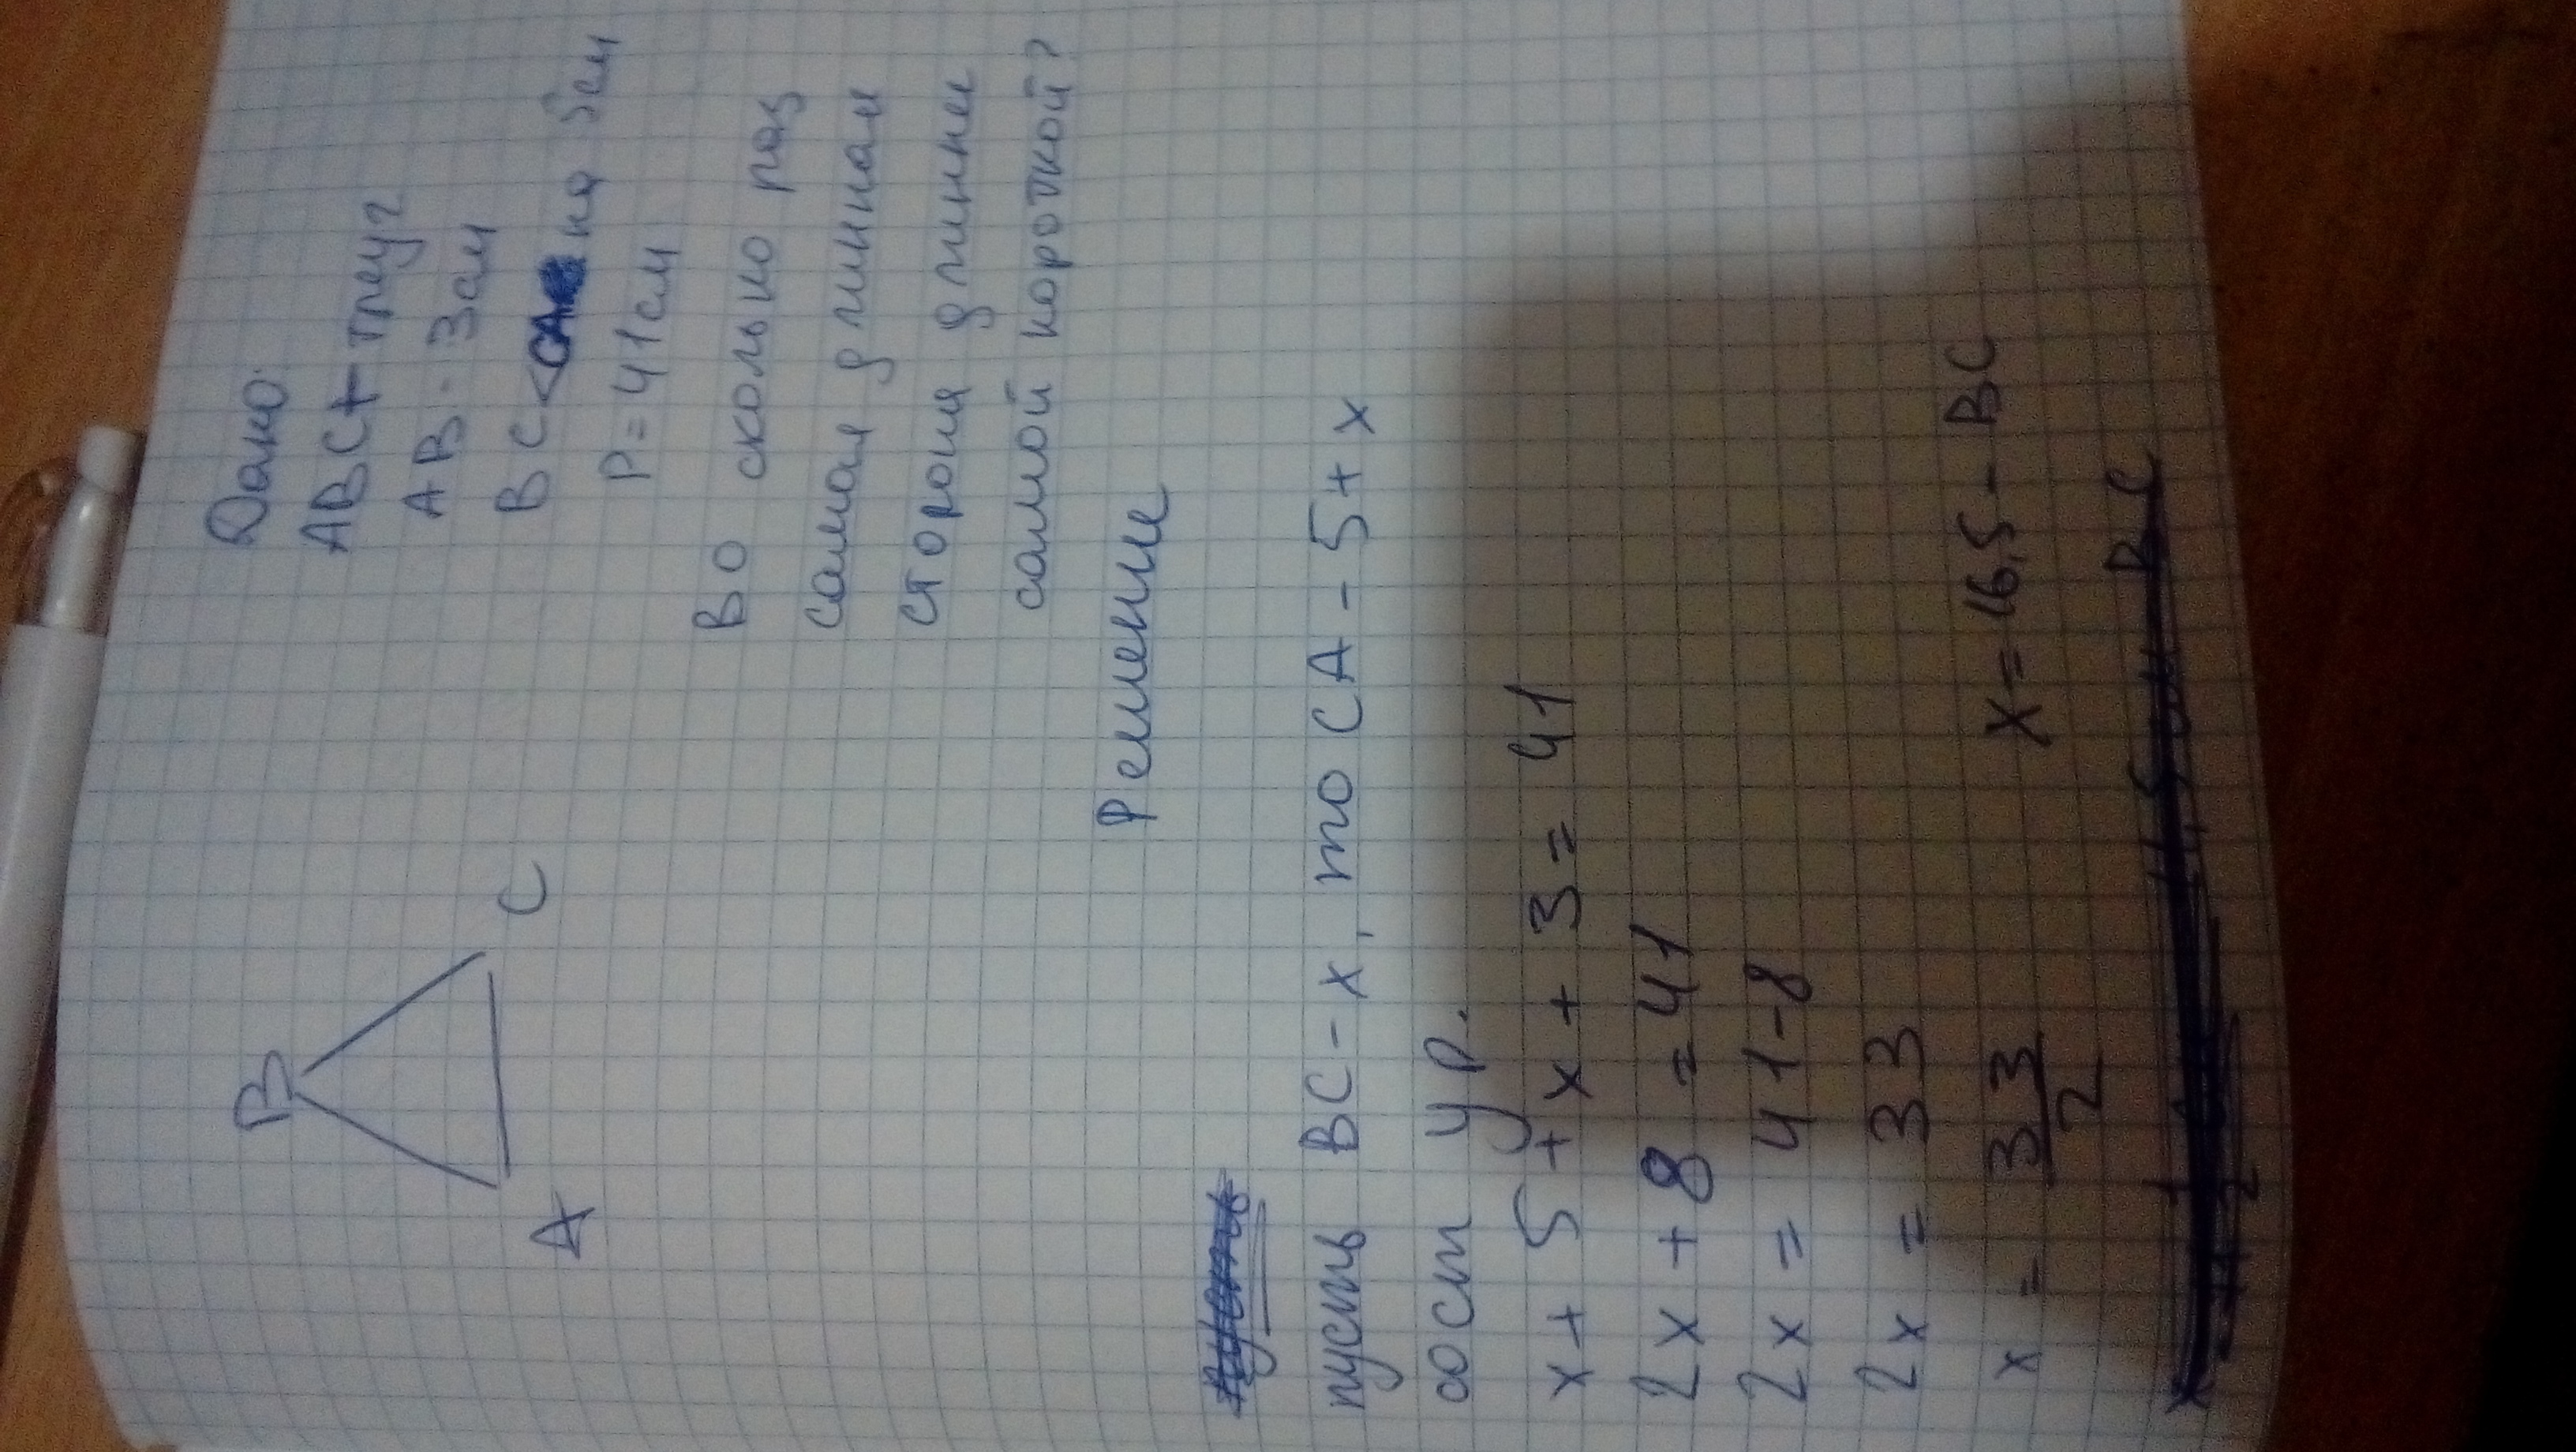 Дано:
ABC - треуг
AB - 3см
BC < CA на 5см
P = 41см
Во сколько раз
самая длинная
сторона длинны
самой короткой?
B
A
C
Решение
пусть
пусть BC - x, то CA - 5 + x
сост ур.
x + 5 + x + 3 = 41
2x + 8 = 41
2x = 41 - 8
2x = 33
x = 33/2 x = 16,5 - BC